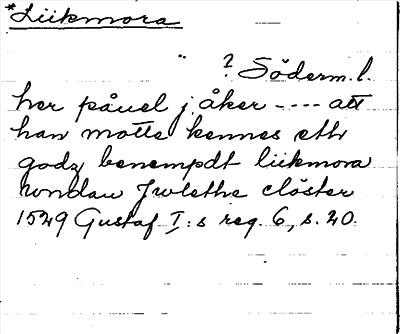 *Liikmora
" ? Söderm. l.
her påuel j åker ---- att
han motte kennes eth
godz benempdt liikmora
wndan Jwlethe clöster
1529 Gustaf I:s reg. 6, s. 20.